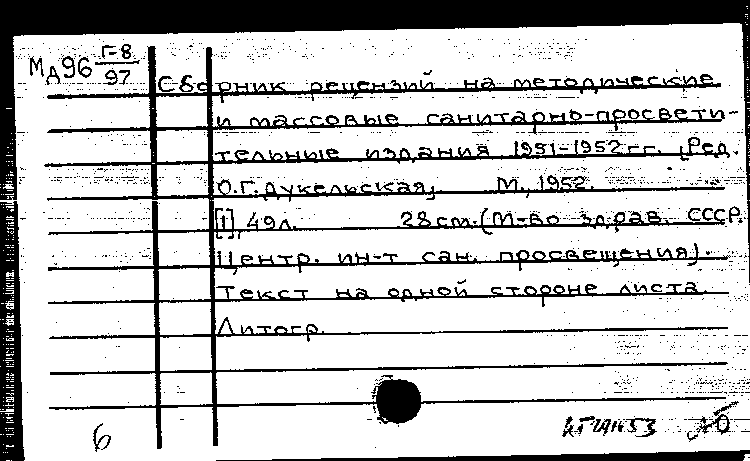 МА96 Г-8/97
Сборник рецензий на методические
и массовые санитарно-просвети-
тельные издания 1951-1952 гг. [Ред.
О.Г. Дукельская]. М., 1952.
[1], 49 л. 28 см. (М-во здрав. СССР.
Центр. ин-т сан. просвещения).
Текст на одной стороне листа.
Литогр.
6